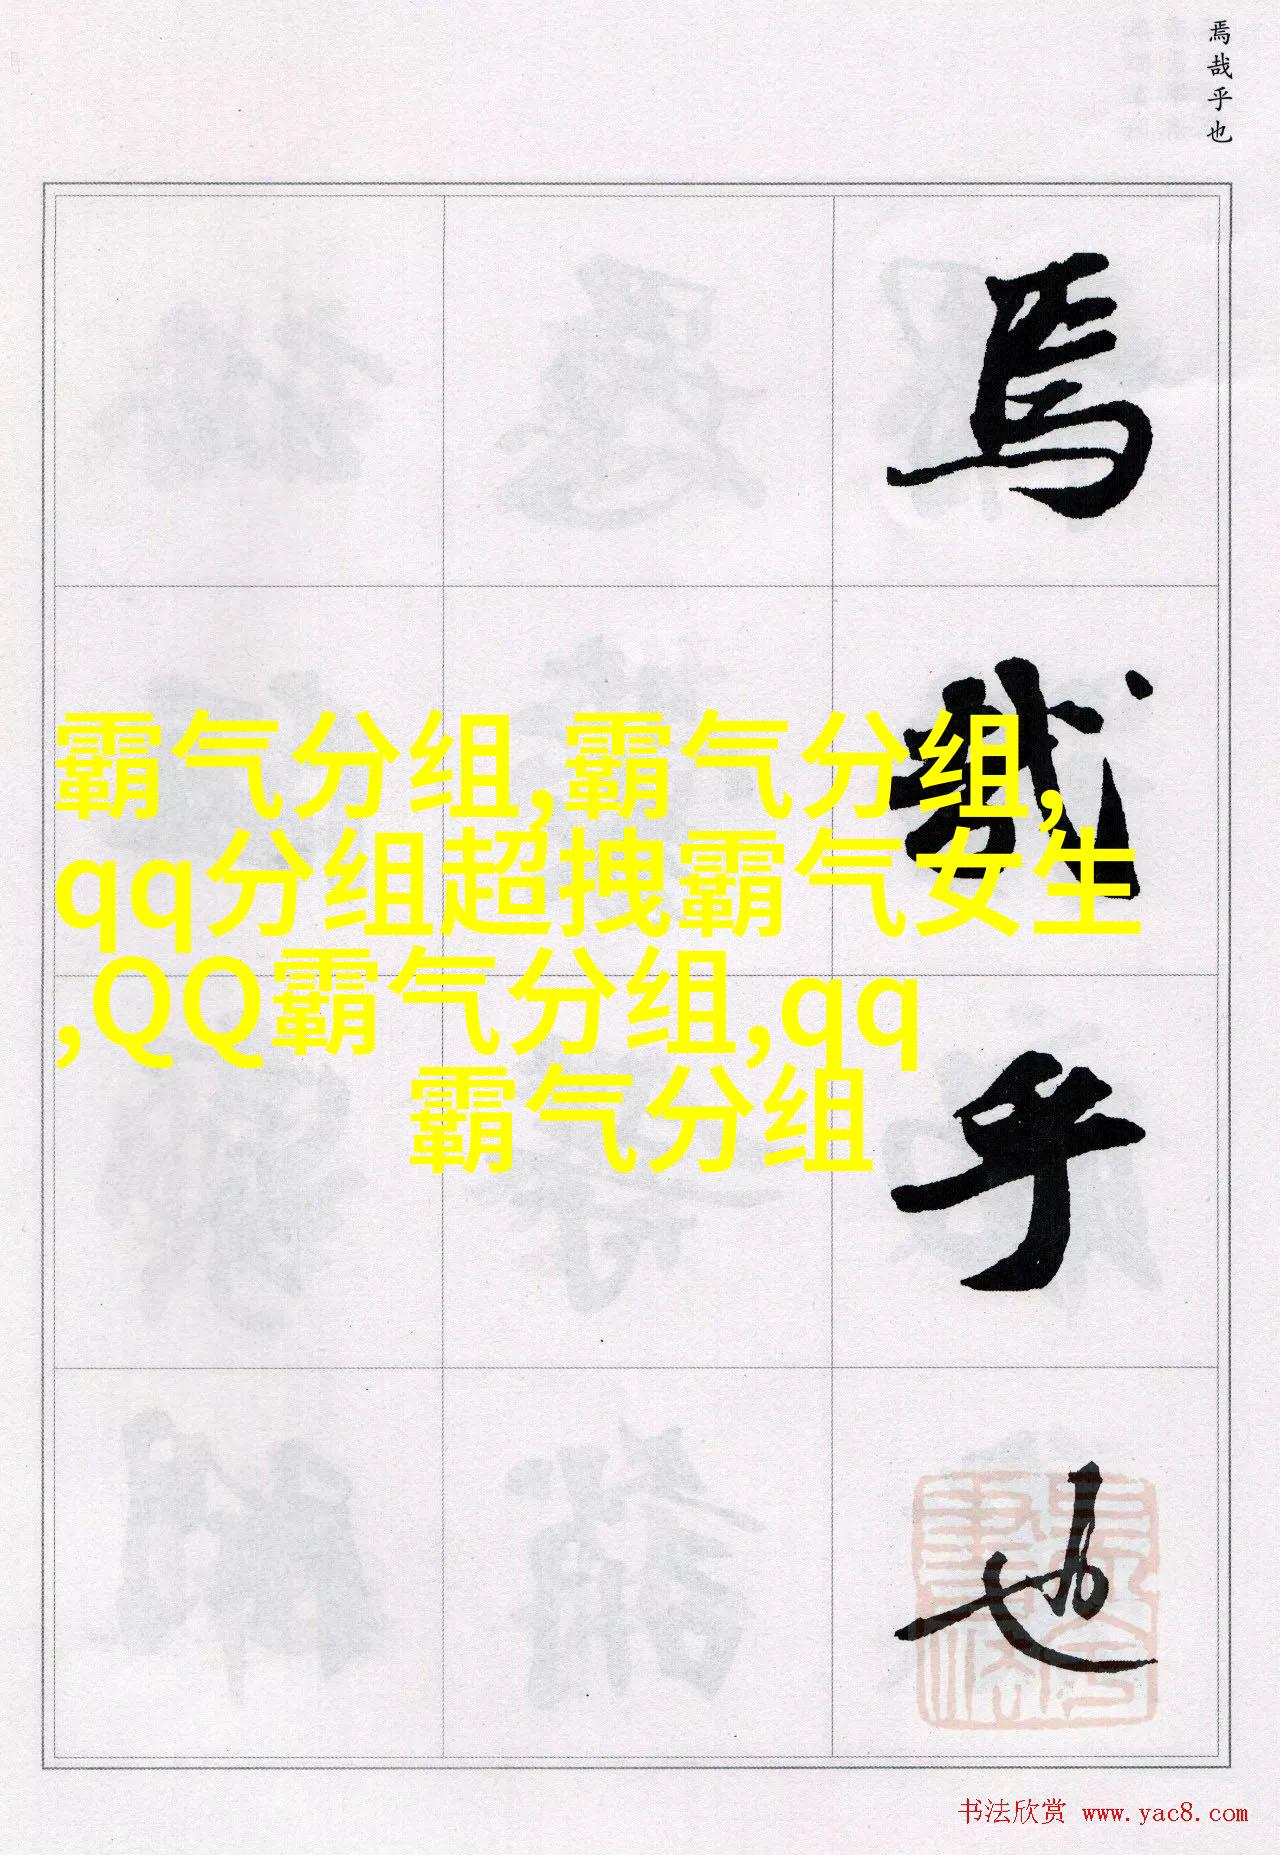 焉哉乎也
焉
哉
乎
也
霸气分组,霸气分组,
qq分组超拽霸气女生
,QQ霸气分组,qq
霸气分组
书法欣赏 www.yac8.com